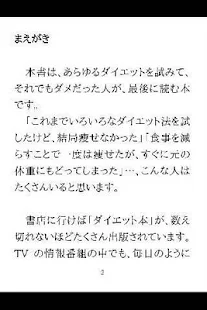 まえがき
本書は、あらゆるダイエットを試みて、
それでもダメだった人が、最後に読む本
です。
「これまでいろいろなダイエット法を試
したけど、結局痩せなかった」「食事を減
らすことで一度は痩せたが、すぐに元の
体重にもどってしまった」…、こんな人は
たくさんいると思います。
書店に行けば「ダイエット本」が、数え
切れないほどたくさん出版されています。
TV の情報番組の中でも、毎日のように
2